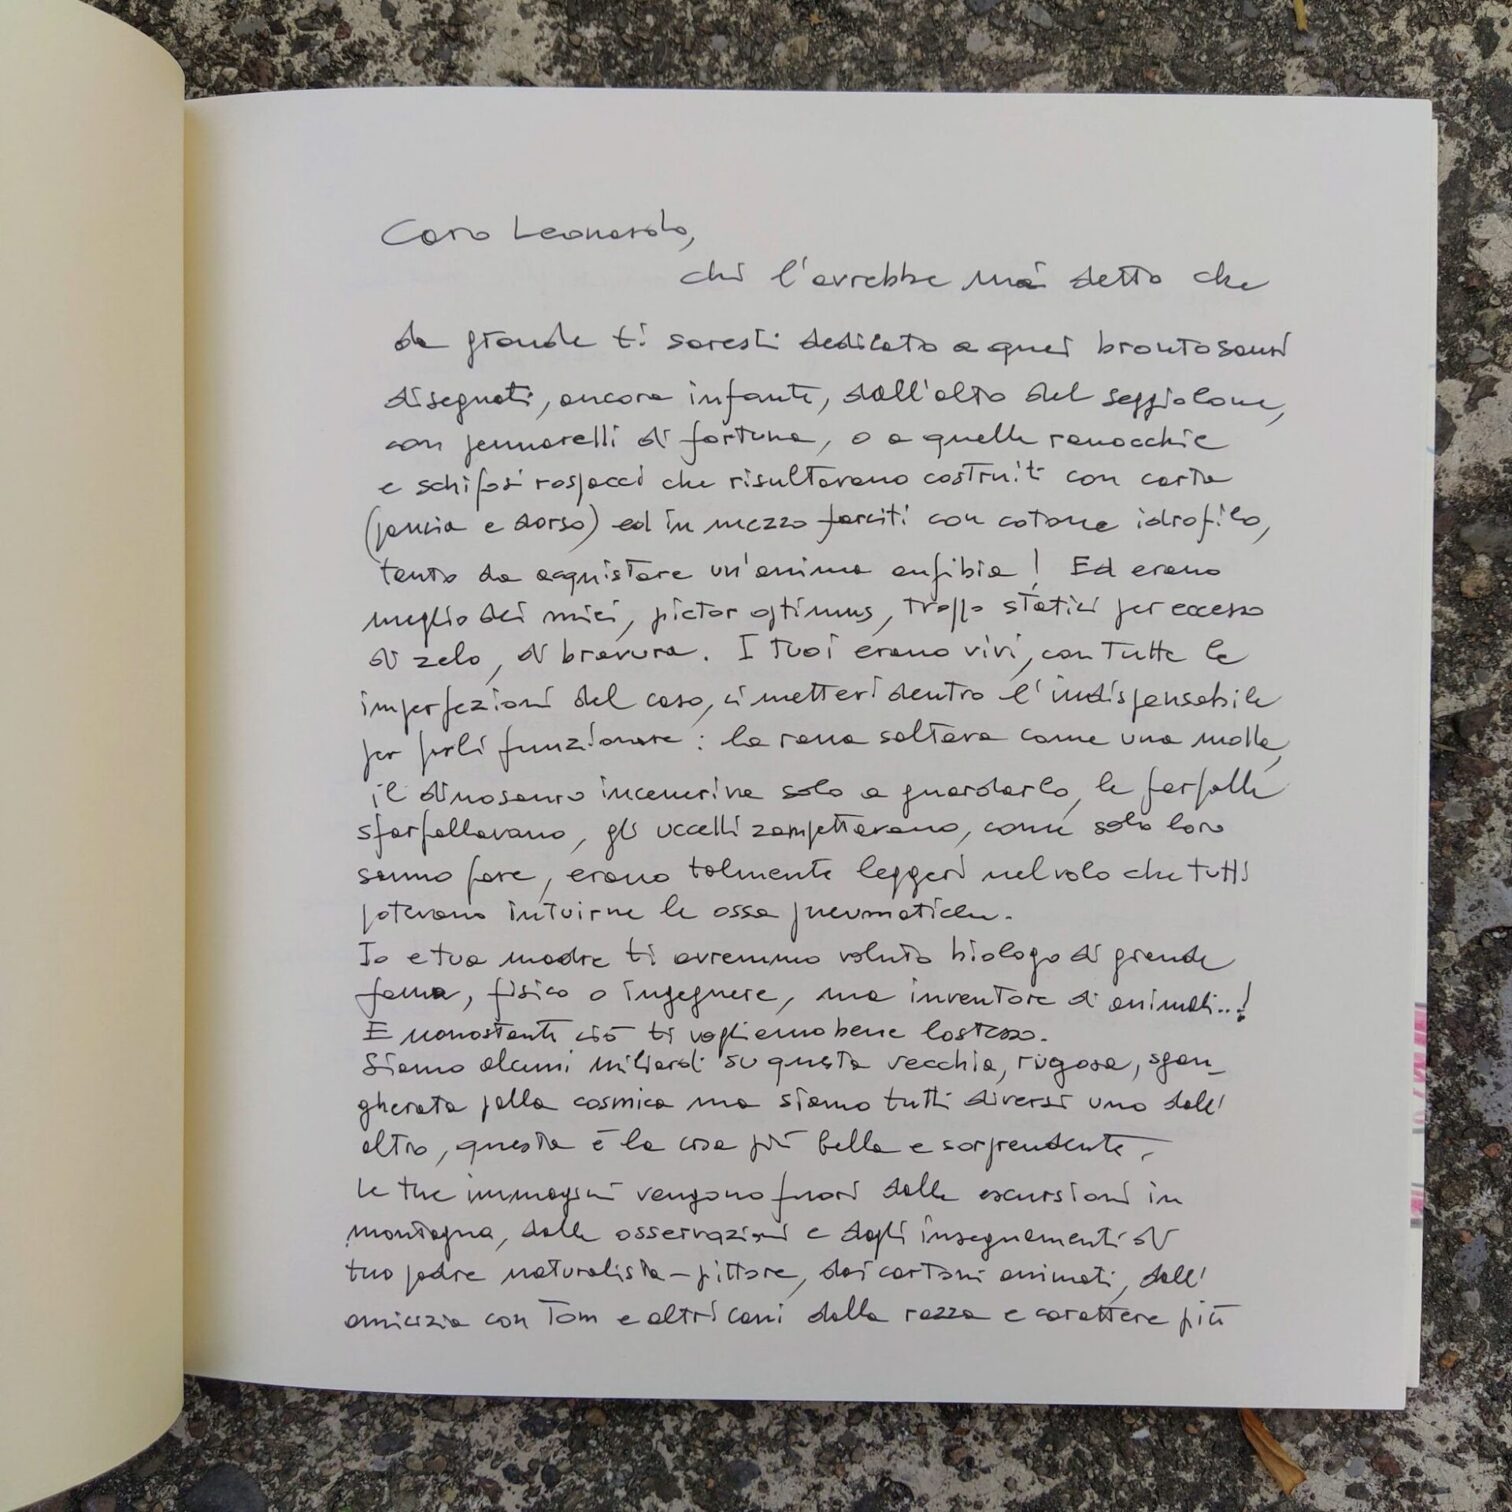 Caro Leonardo,
chi l'avrebbe mai detto che
da grande ti saresti dedicato a quei brontosauri
disegnati, ancora infante, dall'alto del seggiolone,
con pennarelli di fortuna, o a quelle ranocchie
e schifosi rospacci che risultavano costruiti con carta
(pancia e dorso) ed in mezzo farciti con cotone idrofilo,
tanto da acquistare un'anima anfibia! Ed erano
meglio dei miei, pictor optimus, troppo statici per eccesso
di zelo, di bravura. I tuoi erano vivi, con tutte le
imperfezioni del caso, ci mettevi dentro l'indispensabile
per farli funzionare: la rana saltava come una molla,
il dinosauro inceneriva solo a guardarlo, le farfalle
sfarfallavano, gli uccelli zampettavano, come solo loro
sanno fare, erano talmente leggeri nel volo che tutti
potevano intuirne le ossa pneumatiche.
Io e tua madre ti avremmo voluto biologo di grande
fama, fisico o ingegnere, ma inventore di animali..!
E nonostante ciò ti vogliamo bene lo stesso.
Siamo alcuni miliardi su questa vecchia, rugosa, sgan_
gherata palla cosmica ma siamo tutti diversi uno dall'
altro, questa è la cosa più bella e sorprendente.
Le tue immagini vengono fuori dalle escursioni in
montagna, dalle osservazioni e dagli insegnamenti di
tuo padre naturalista-pittore, dai cartoni animati, dall'
amicizia con Tom e altri cani dalla razza e carattere più